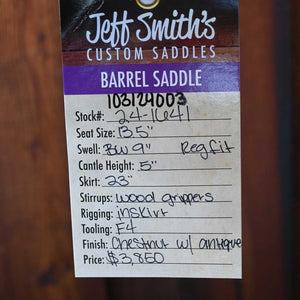 Jeff Smith's
CUSTOM SADDLES
BARREL SADDLE
103124003
Stock#: 24-1641
Seat Size: 13.5"
Swell: BW 9" Reg fit
Cantle Height: 5"
Skirt: 23"
Stirrups: wood grippers
Rigging: inskirt
Tooling: F4
Finish: Chestnut w/ antique
Price: $3,850